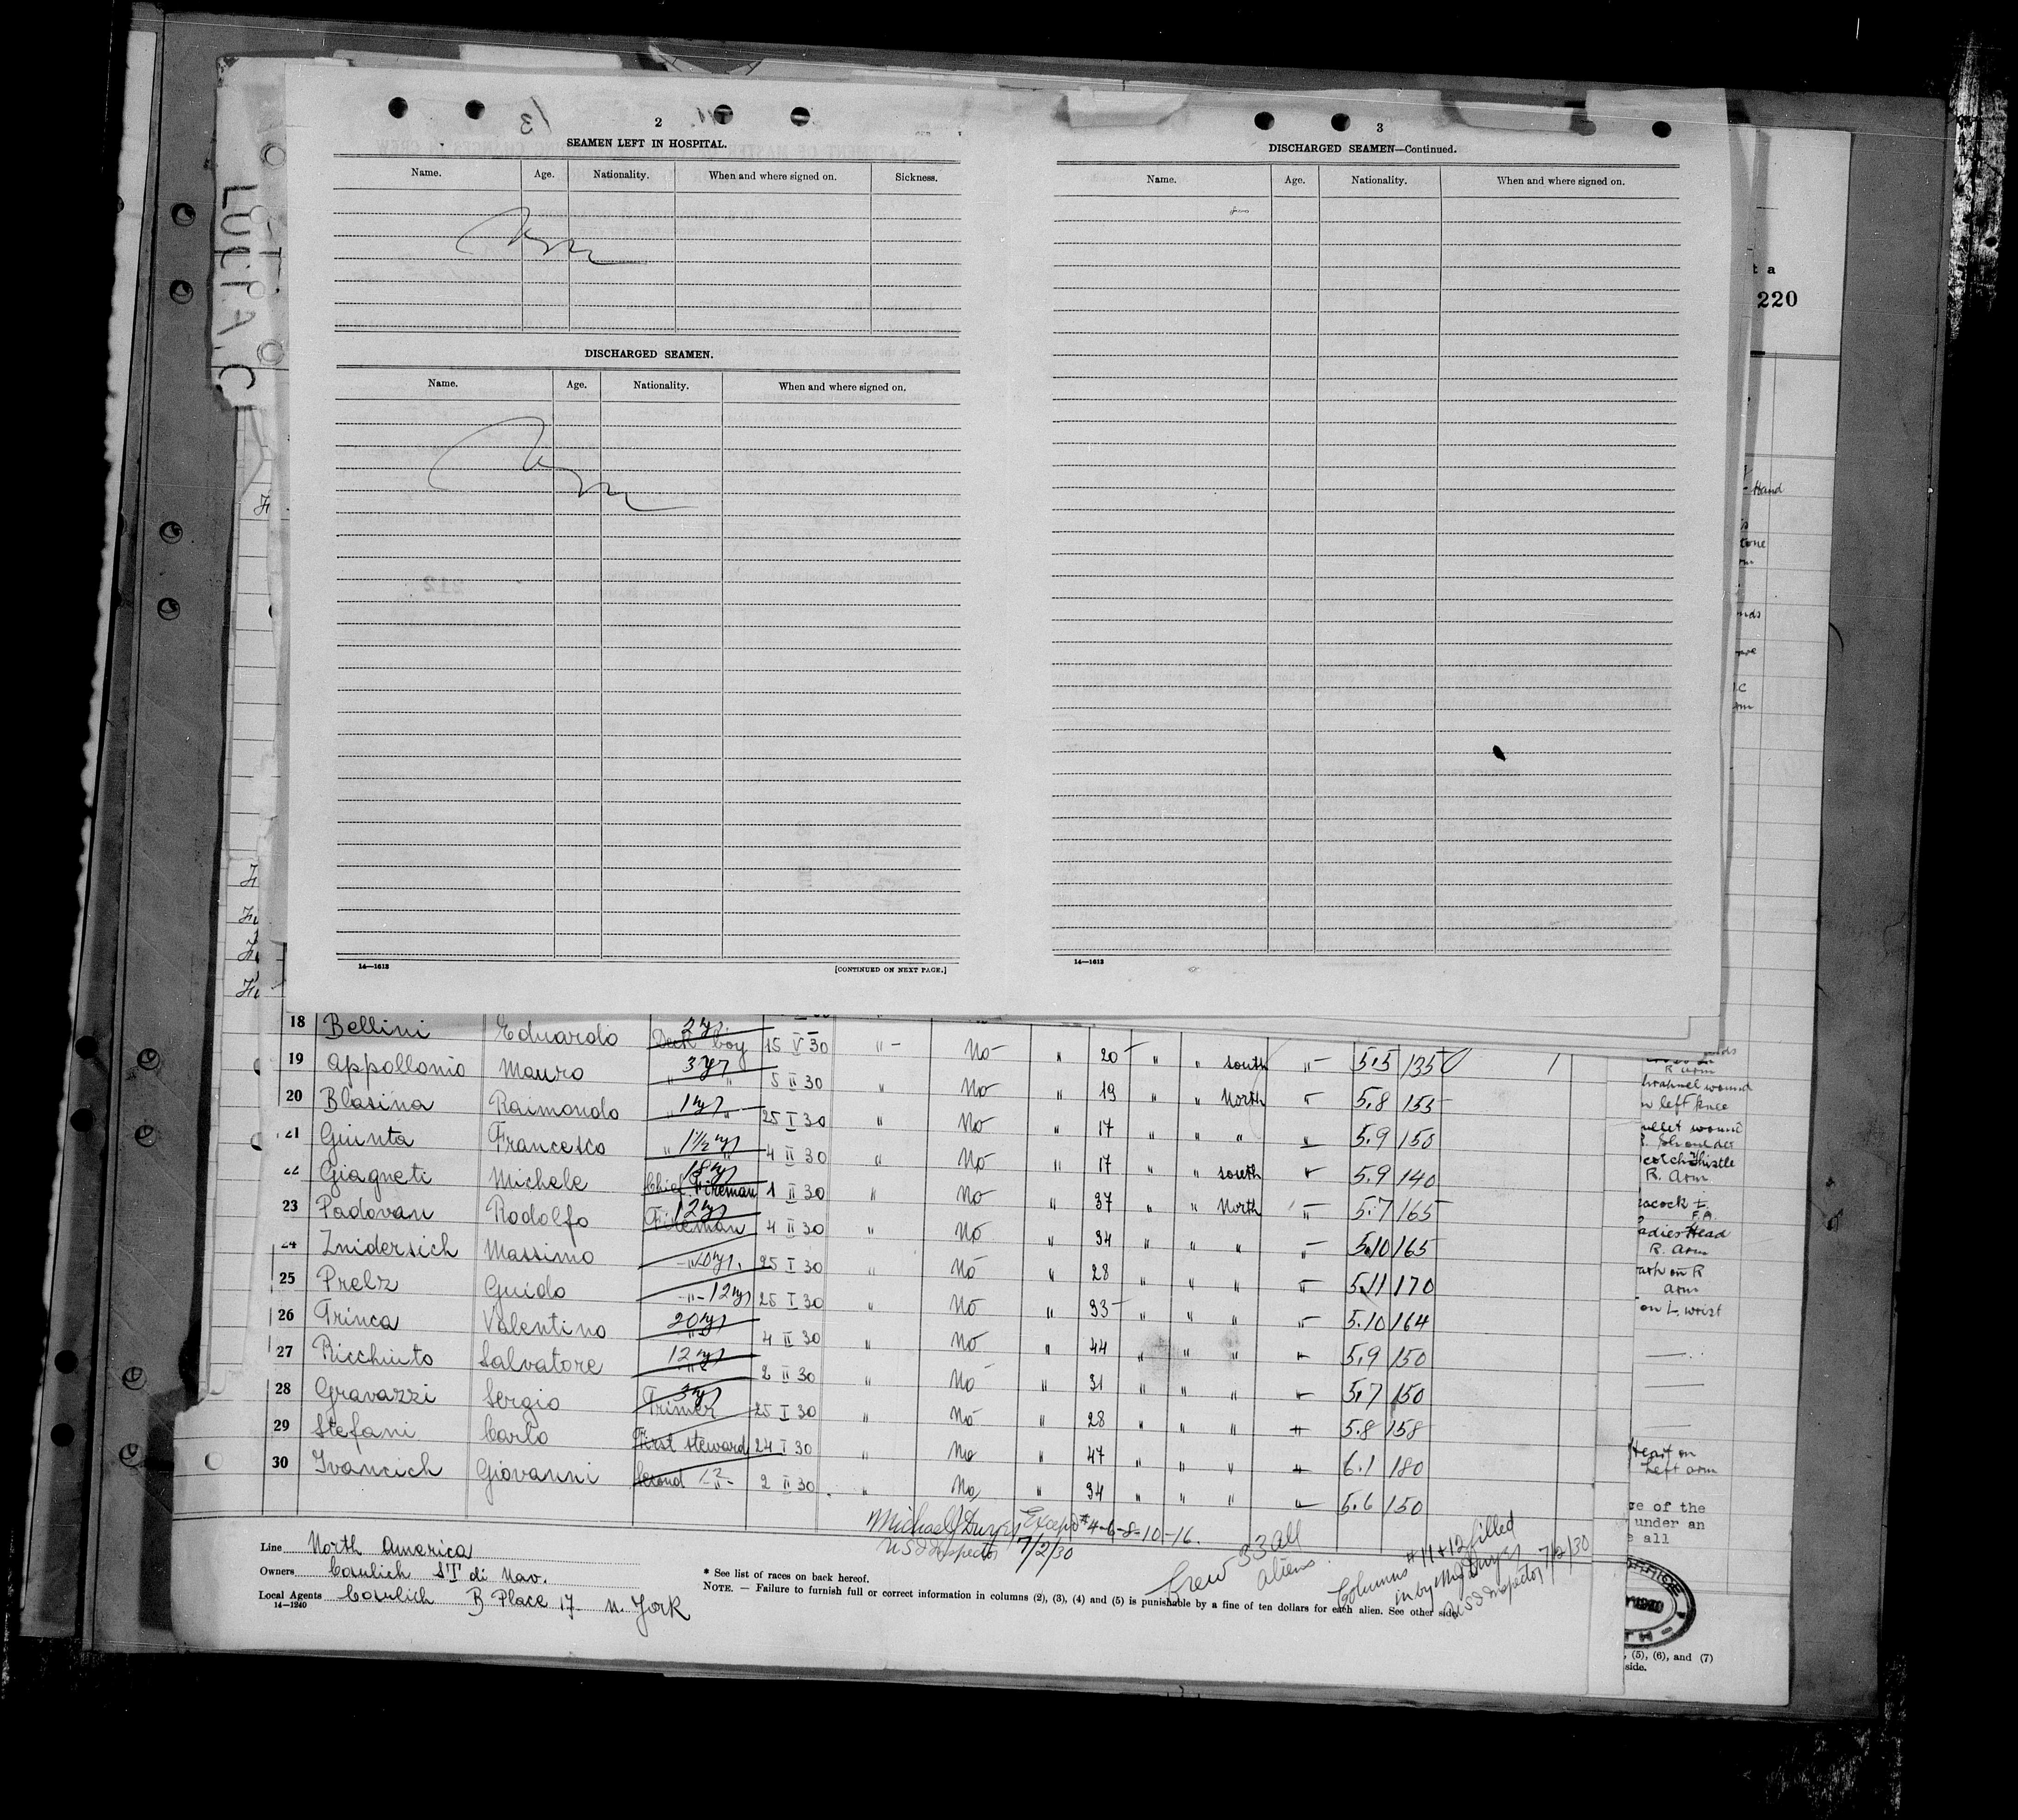 2
SEAMEN LEFT IN HOSPITAL.
Name. Age. Nationality. When and where signed on. Sickness.
DISCHARGED SEAMEN.
Name. Age. Nationality. When and where signed on.
14—1613 [CONTINUED ON NEXT PAGE.]
3
DISCHARGED SEAMEN—Continued.
Name. Age. Nationality. When and where signed on.
14—1613
t a
220
Hand
18 Bellini Eduardo 2 yr. Deck boy 15 V 30 " No " 20 " " south " 5.5 135
19 Appollonio Mauro 3 yr " " 5 II 30 " No " 19 " " North " 5.8 155
20 Blasina Raimondo 1 yr " " 25 I 30 " No " 17 " " " " 5.9 150
21 Giunta Francesco " 1 1/2 yr " 4 II 30 " No " 17 " " south " 5.9 140
22 Giagneti Michele 18 yr Chief Fireman 1 II 30 " No " 37 " " North " 5.7 165
23 Padovan Rodolfo 12 yr Fireman 4 II 30 " No " 34 " " " " 5.10 165
24 Znidersich Massimo " 10 yr. 25 I 30 " No " 28 " " " " 5.11 170
25 Prelz Guido " 12 yr 25 I 30 " No " 33 " " " " 5.10 164
26 Trinca Valentino 20 yr " 4 II 30 " No " 44 " " " " 5.9 150
27 Ricchiuto Salvatore 12 yr " 2 II 30 " No " 31 " " " " 5.7 150
28 Gravazzi Sergio 3 yr Trimer 25 I 30 " No " 28 " " " " 5.8 158
29 Stefani Carlo First steward 24 I 30 " No " 47 " " " " 6.1 180
30 Ivancich Giovanni Second " 2 II 30 " No " 34 " " " " 5.6 150
R arm
wound
left knee
wound
Thistle
R. Arm
Head
R. Arm
on R
arm
on L wrist
Heart on
Left arm
of the
under an
all
Michael J Dwyer Except #4-6-8-10-16.
U S I Inspector 7/2/30
Crew 33 all
aliens
Columns #11+12 filled
in by M J Dwyer
U S I Inspector 7/2/30
Line North America
Owners Cosulich S.T. di Nav.
Local Agents Cosulich B Place 17 N. York
14—1240
* See list of races on back hereof.
NOTE. — Failure to furnish full or correct information in columns (2), (3), (4) and (5) is punishable by a fine of ten dollars for each alien. See other side.
(5), (6), and (7)
side.